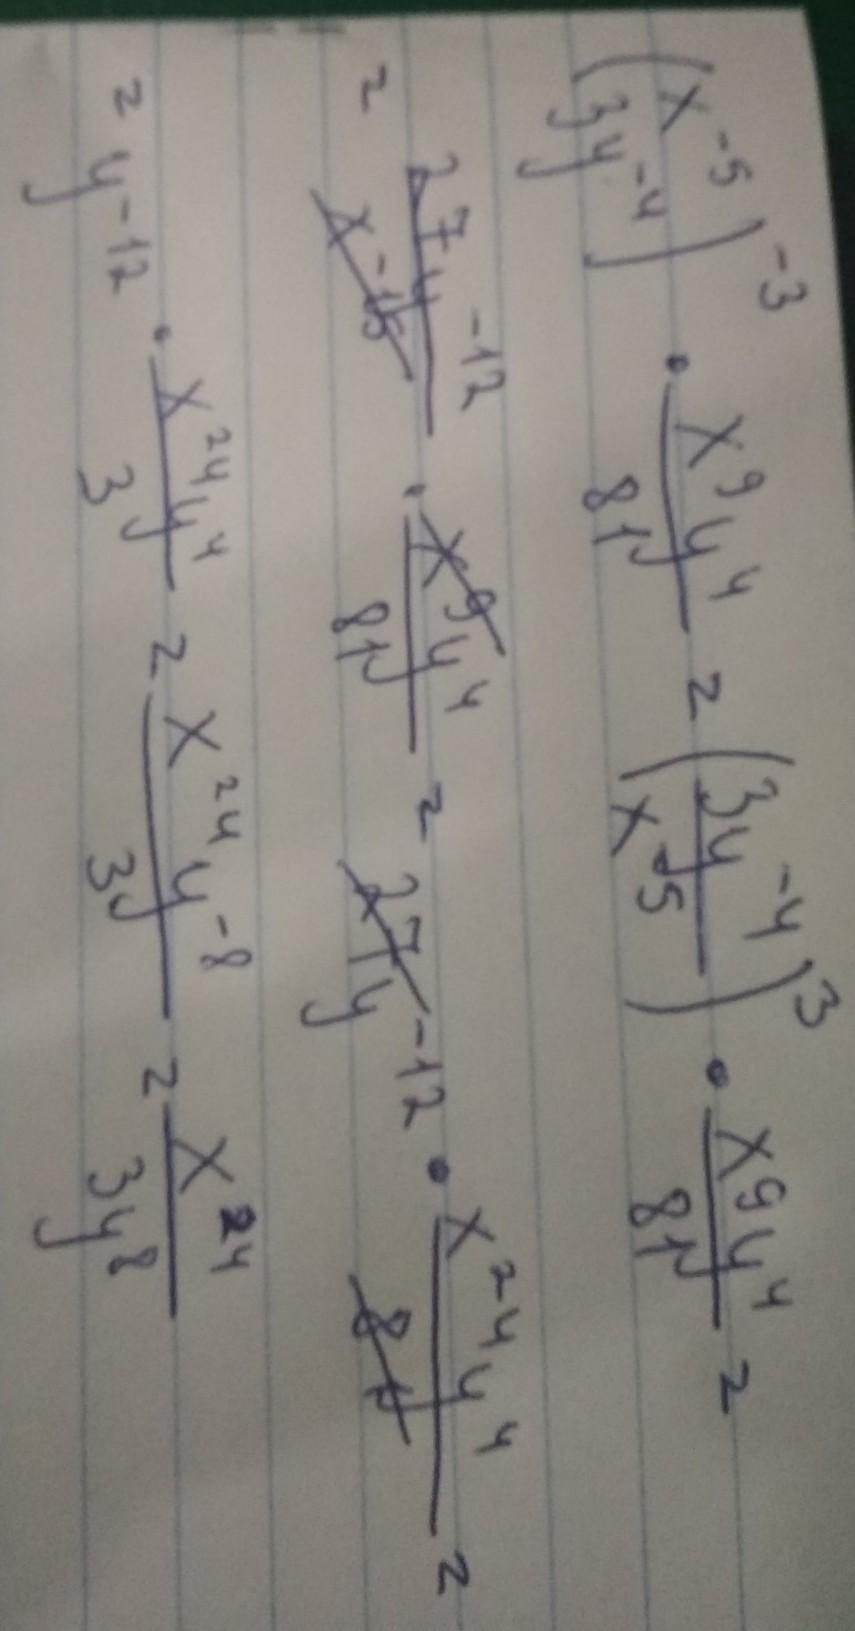 (x^-5 / 3y^-4)^-3 · x^9y^4 / 81 = (3y^-4 / x^-5)^3 · x^9y^4 / 81 =
= 27y^-12 / x^-15 · x^9y^4 / 81 = 27y^-12 · x^24y^4 / 81 =
= y^-12 · x^24y^4 / 3 = x^24y^-8 / 3 = x^24 / 3y^8